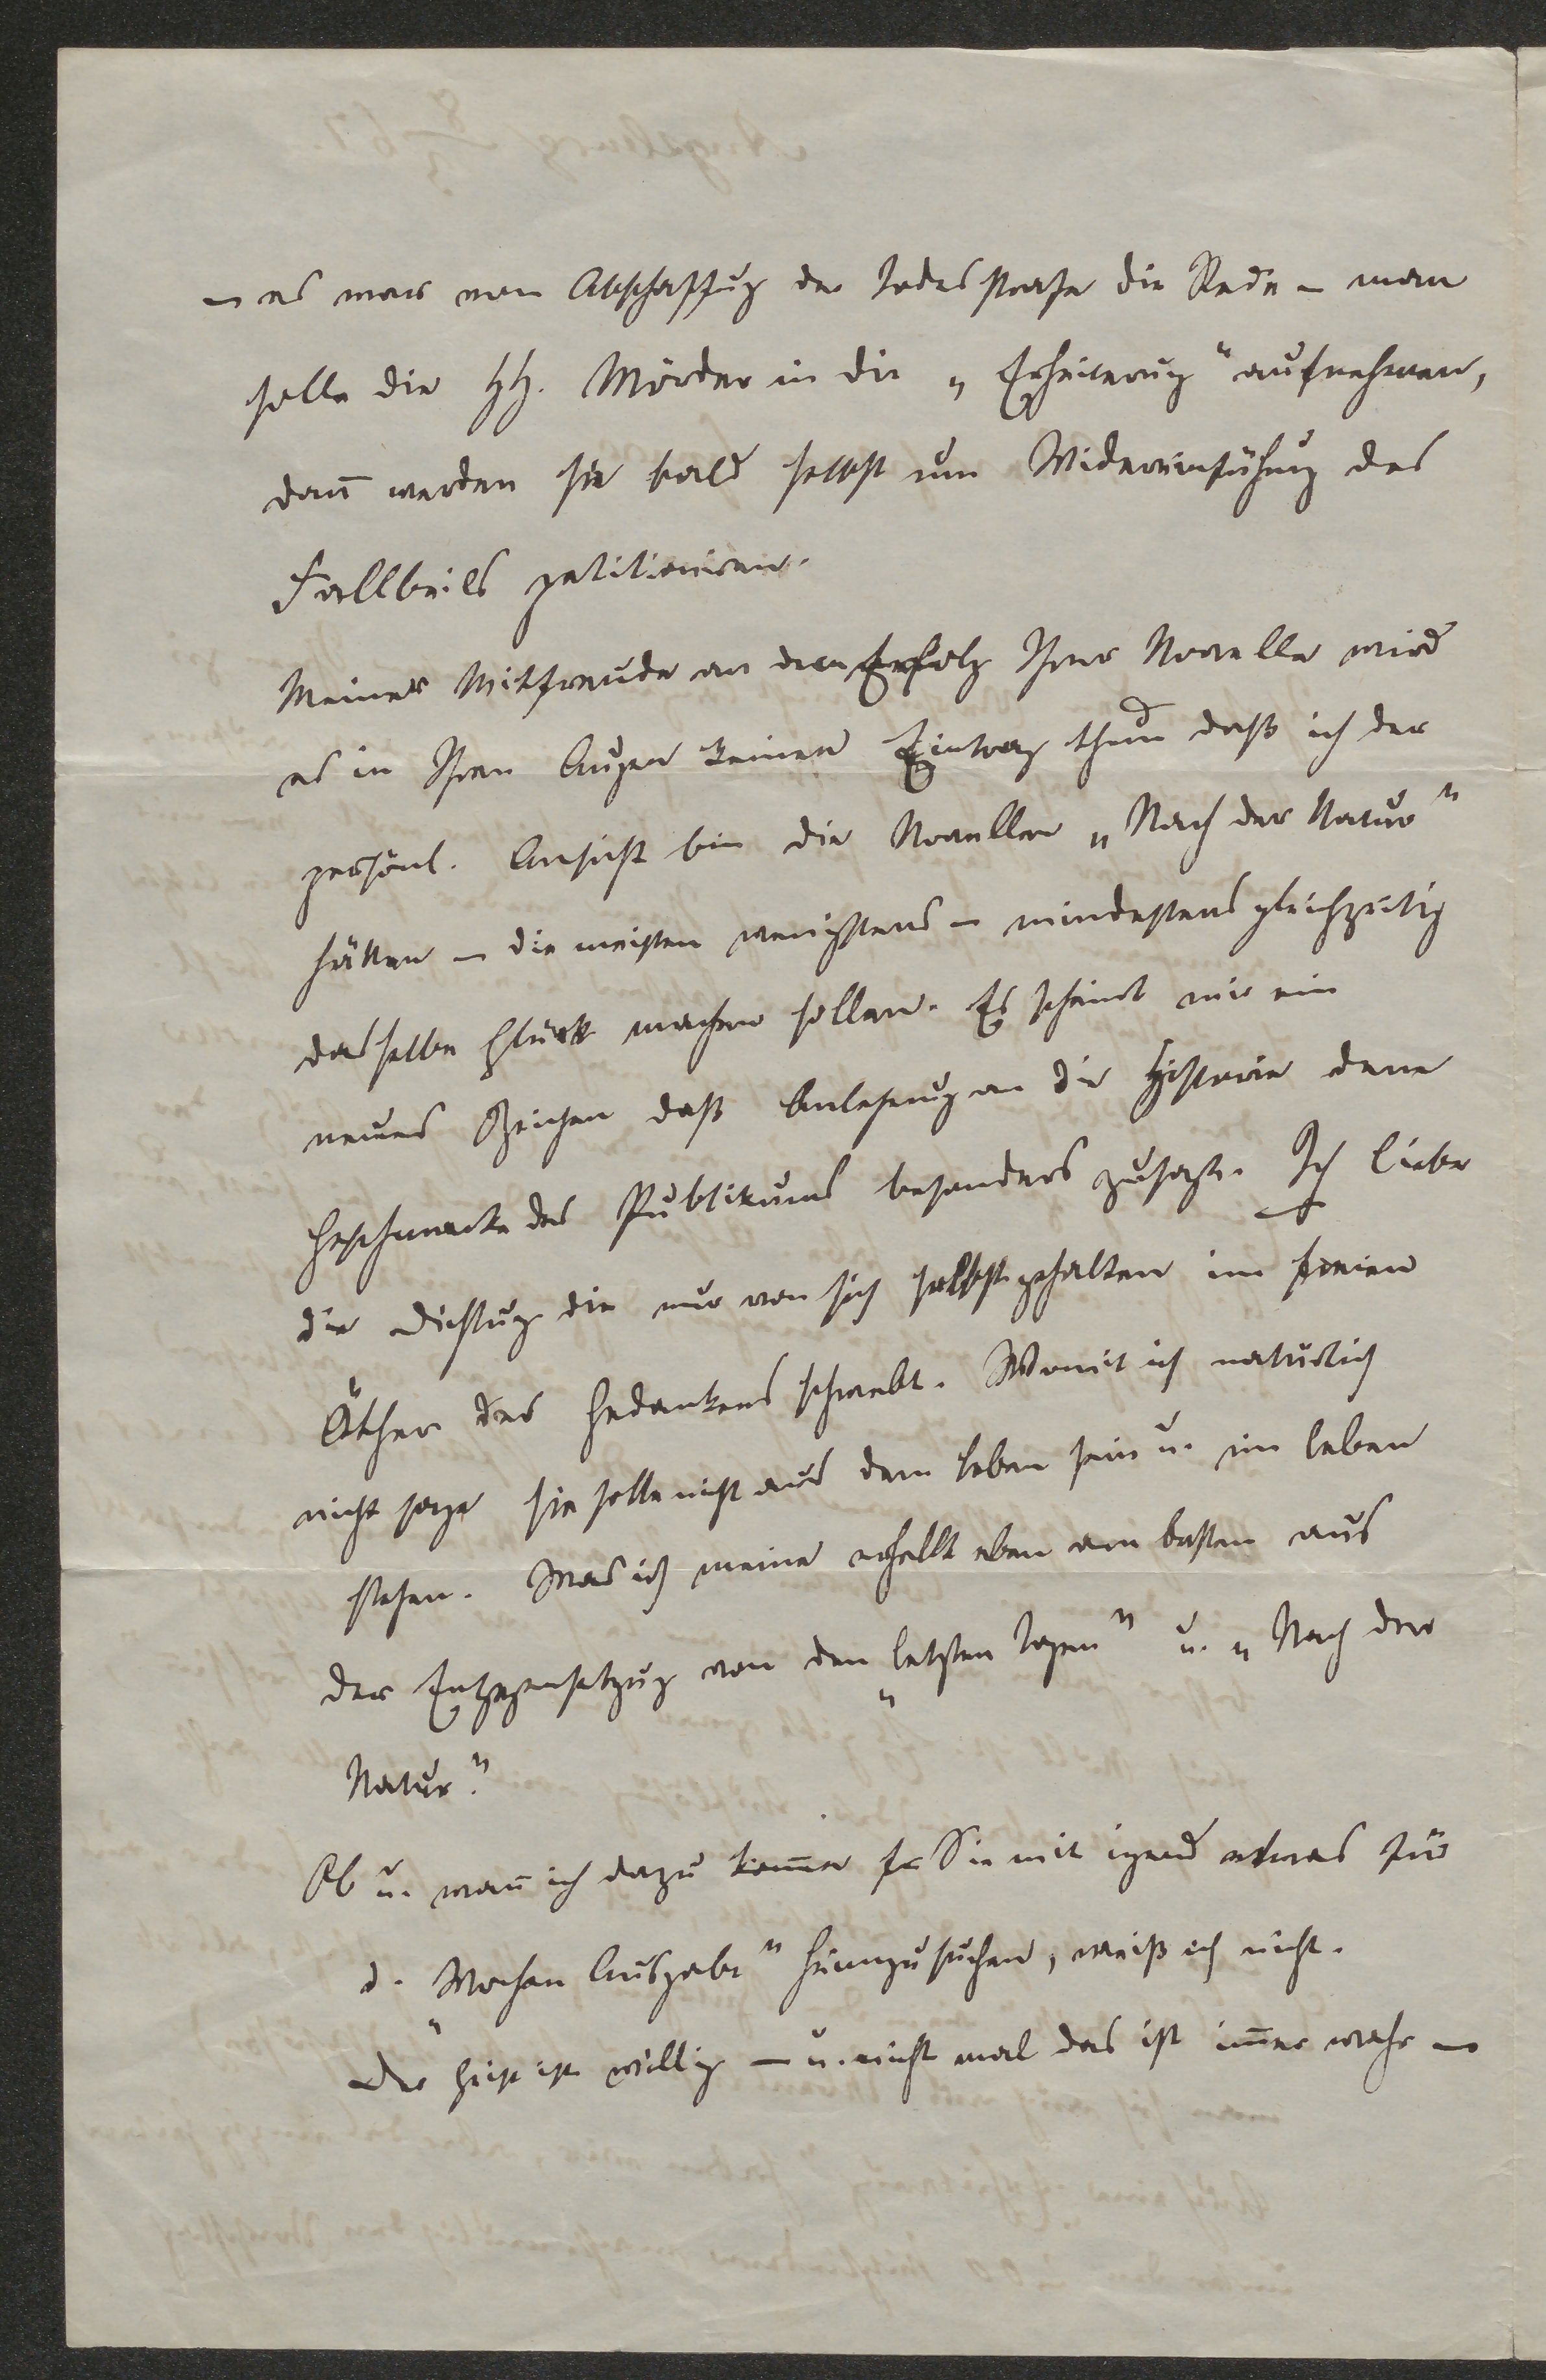 – es war von Abschaffung der Todesstrafe die Rede – man
solle die HH. Mörder in die „Erheiterung" aufnehmen,
dañ werden sie bald selbst um Widereinführung des
Fallbeils petitioniren.
Meiner Mitfreude an dem Erfolg Ihrer Novelle wird
es in Ihren Augen keinen Eintrag thun daß ich der
persönl. Ansicht bin die Novellen „Nach der Natur"
hätten – die meisten wenigstens – mindestens gleichzeitig
dasselbe Glück machen sollen. Es scheint mir ein
neues Zeichen daß Anlehnung an die Historie dem
Geschmacke des Publikums besonders zusagt. Ich liebe
die Dichtung die nur von sich selbst gehalten im freien
Äther des Gedankens schwebt. Womit ich natürlich
nicht sage sie solle nicht aus dem Leben sein u. im Leben
stehen. Was ich meine erhellt eben am besten aus
der Entgegensetzung von den „letzten Tagen" u. „Nach der
Natur."
Ob u. wañ ich dazu kom̃e Sie mit irgend etwas für
d. „Wochen Ausgabe" heimzusuchen, weiß ich nicht.
Der Geist ist willig – u. nicht mal das ist im̃er wahr –